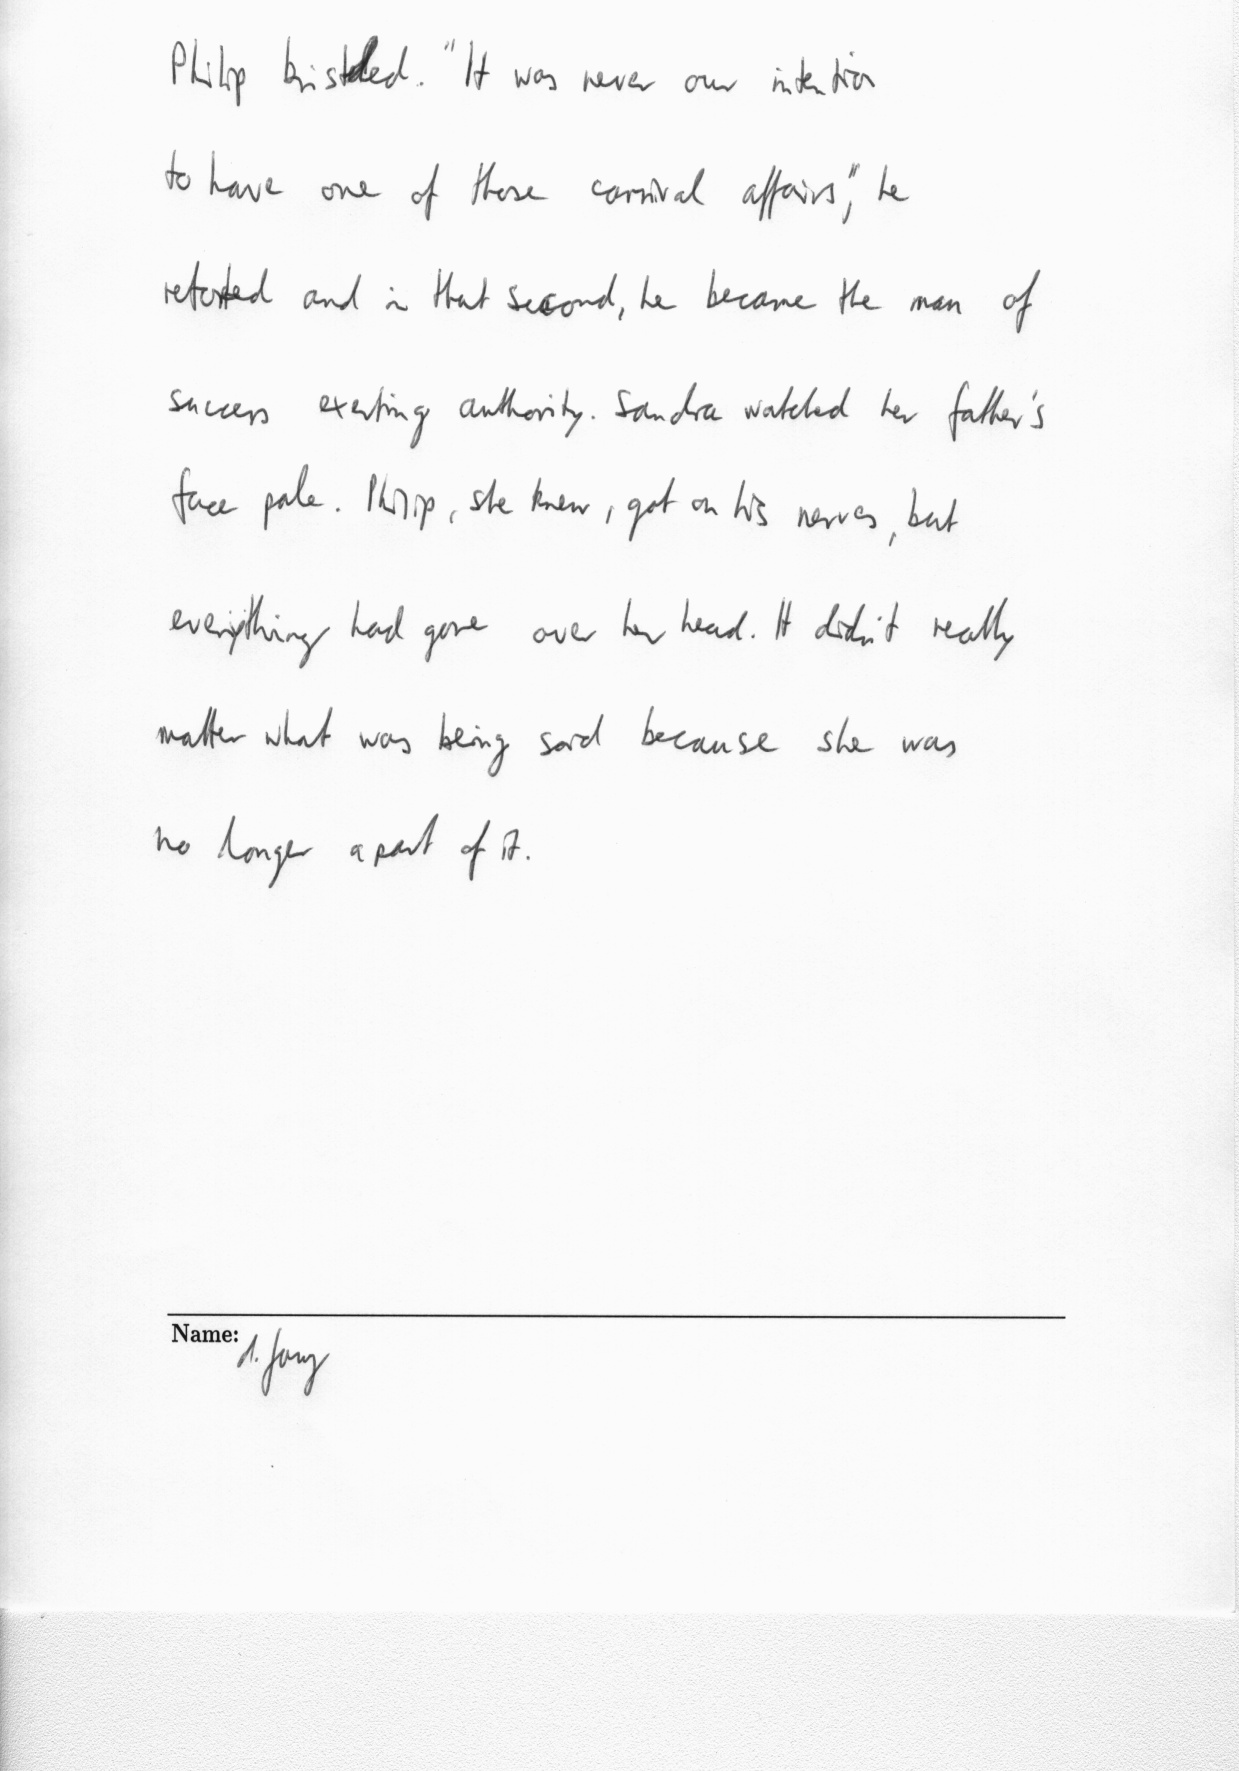 Philip bristled. "It was never our intention
to have one of those carnival affairs", he
retorted and in that second, he became the man of
success exerting authority. Sandra watched her father's
face pale. Philip, she knew, got on his nerves, but
everything had gone over her head. It didn't really
matter what was being said because she was
no longer a part of it.
Name: